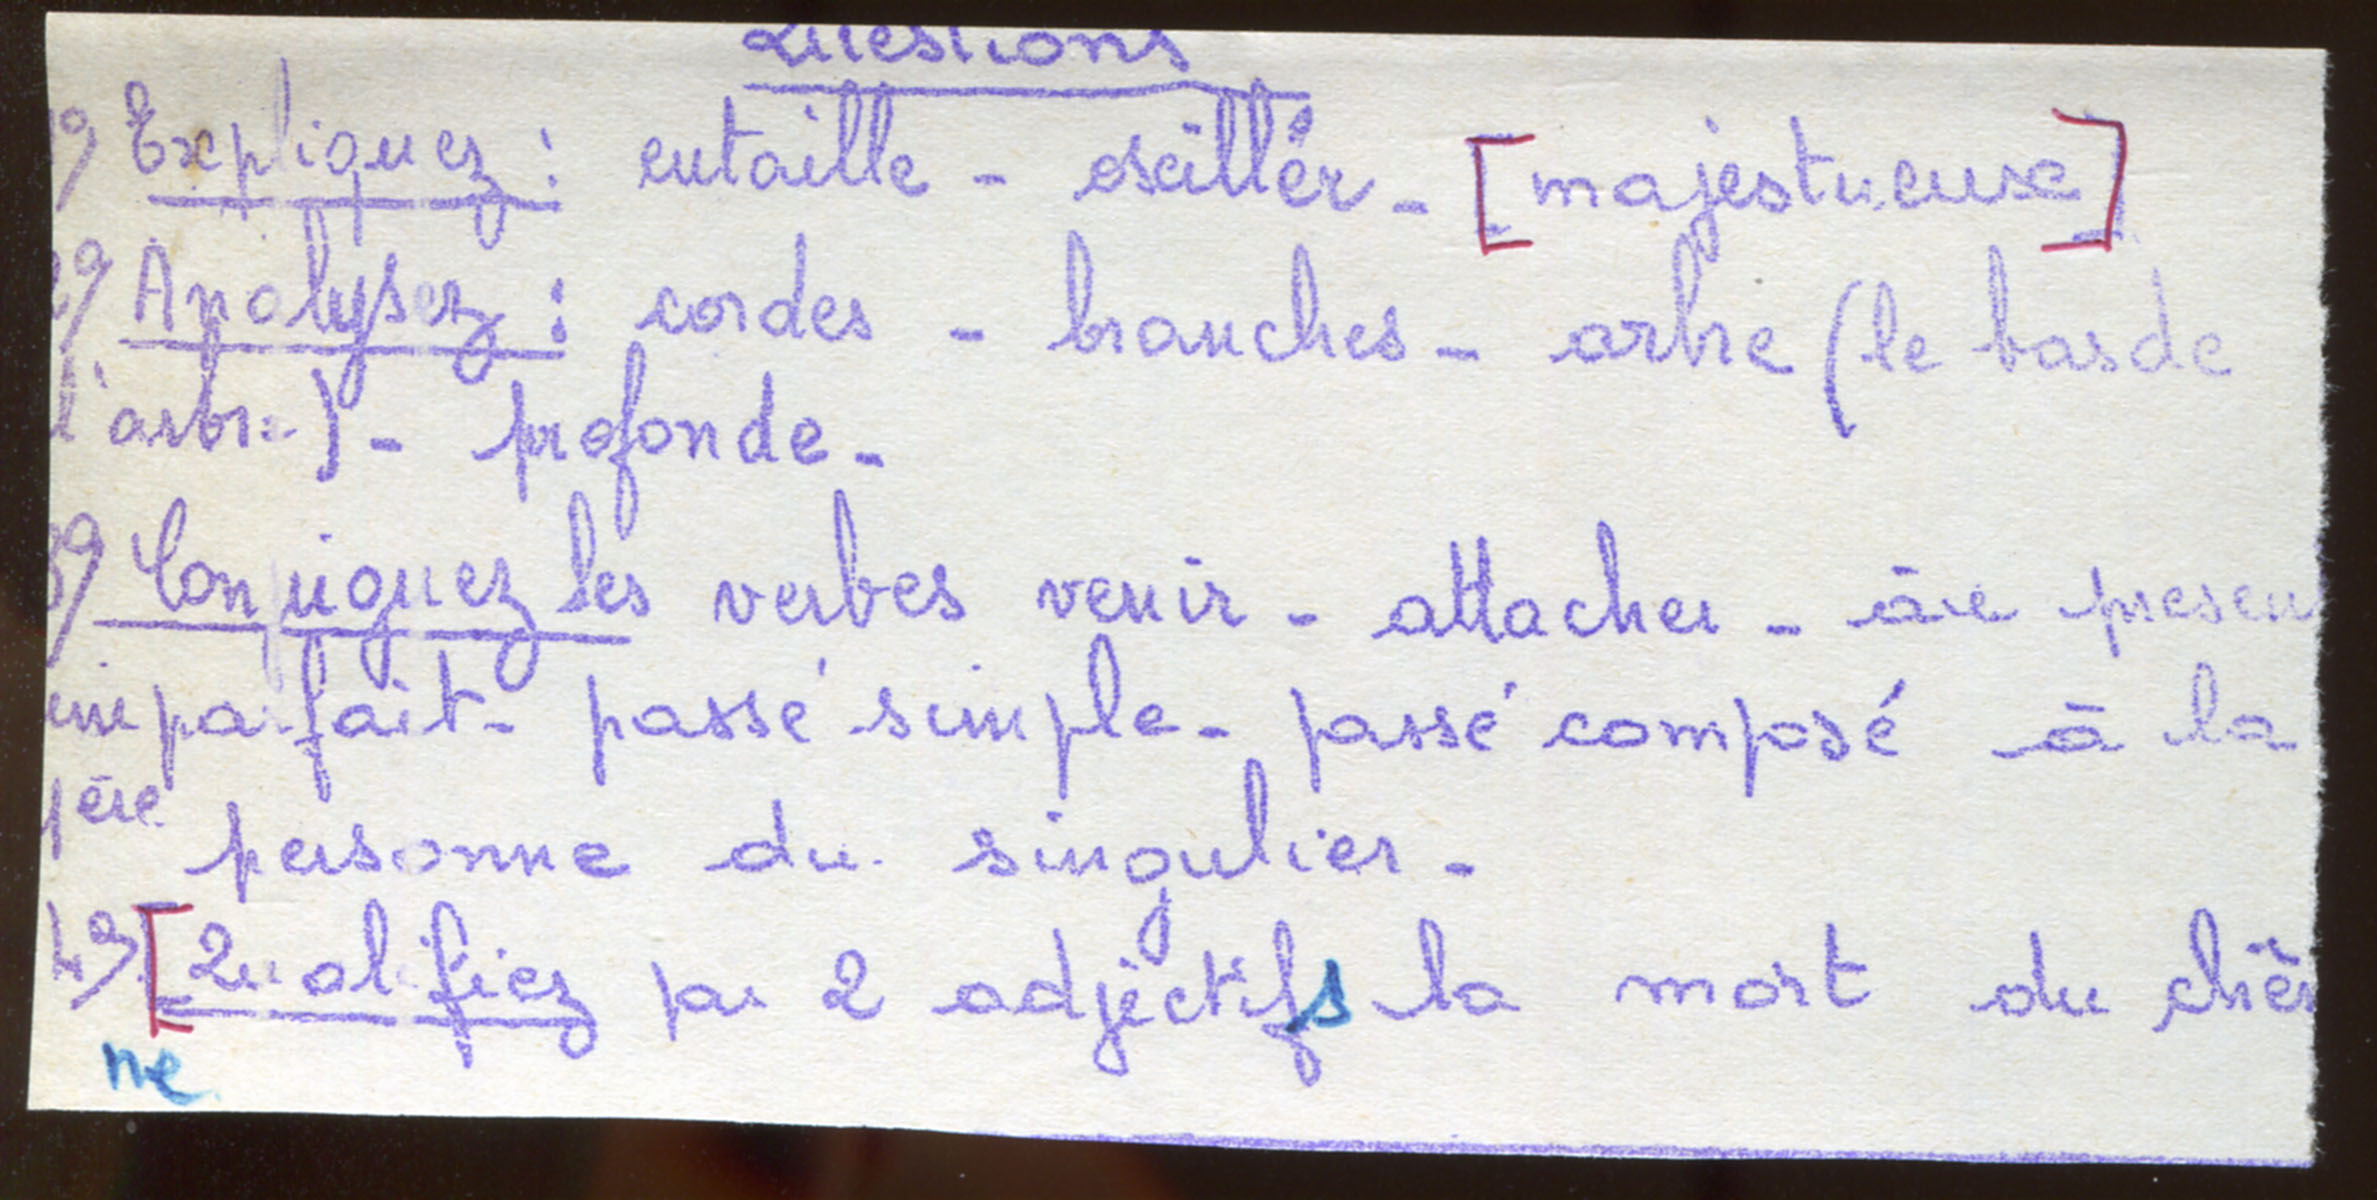 Questions
1º) Expliquez : entaille - osciller - [majestueuse]
2º) Analysez : cordes - branches - arbre (le bas de
l'arbre) - profonde -
3º) Conjuguez les verbes venir - attacher - au présent
imparfait - passé simple - passé composé à la
1ère personne du singulier -
4º) [Qualifiez par 2 adjectifs la mort du chê
ne